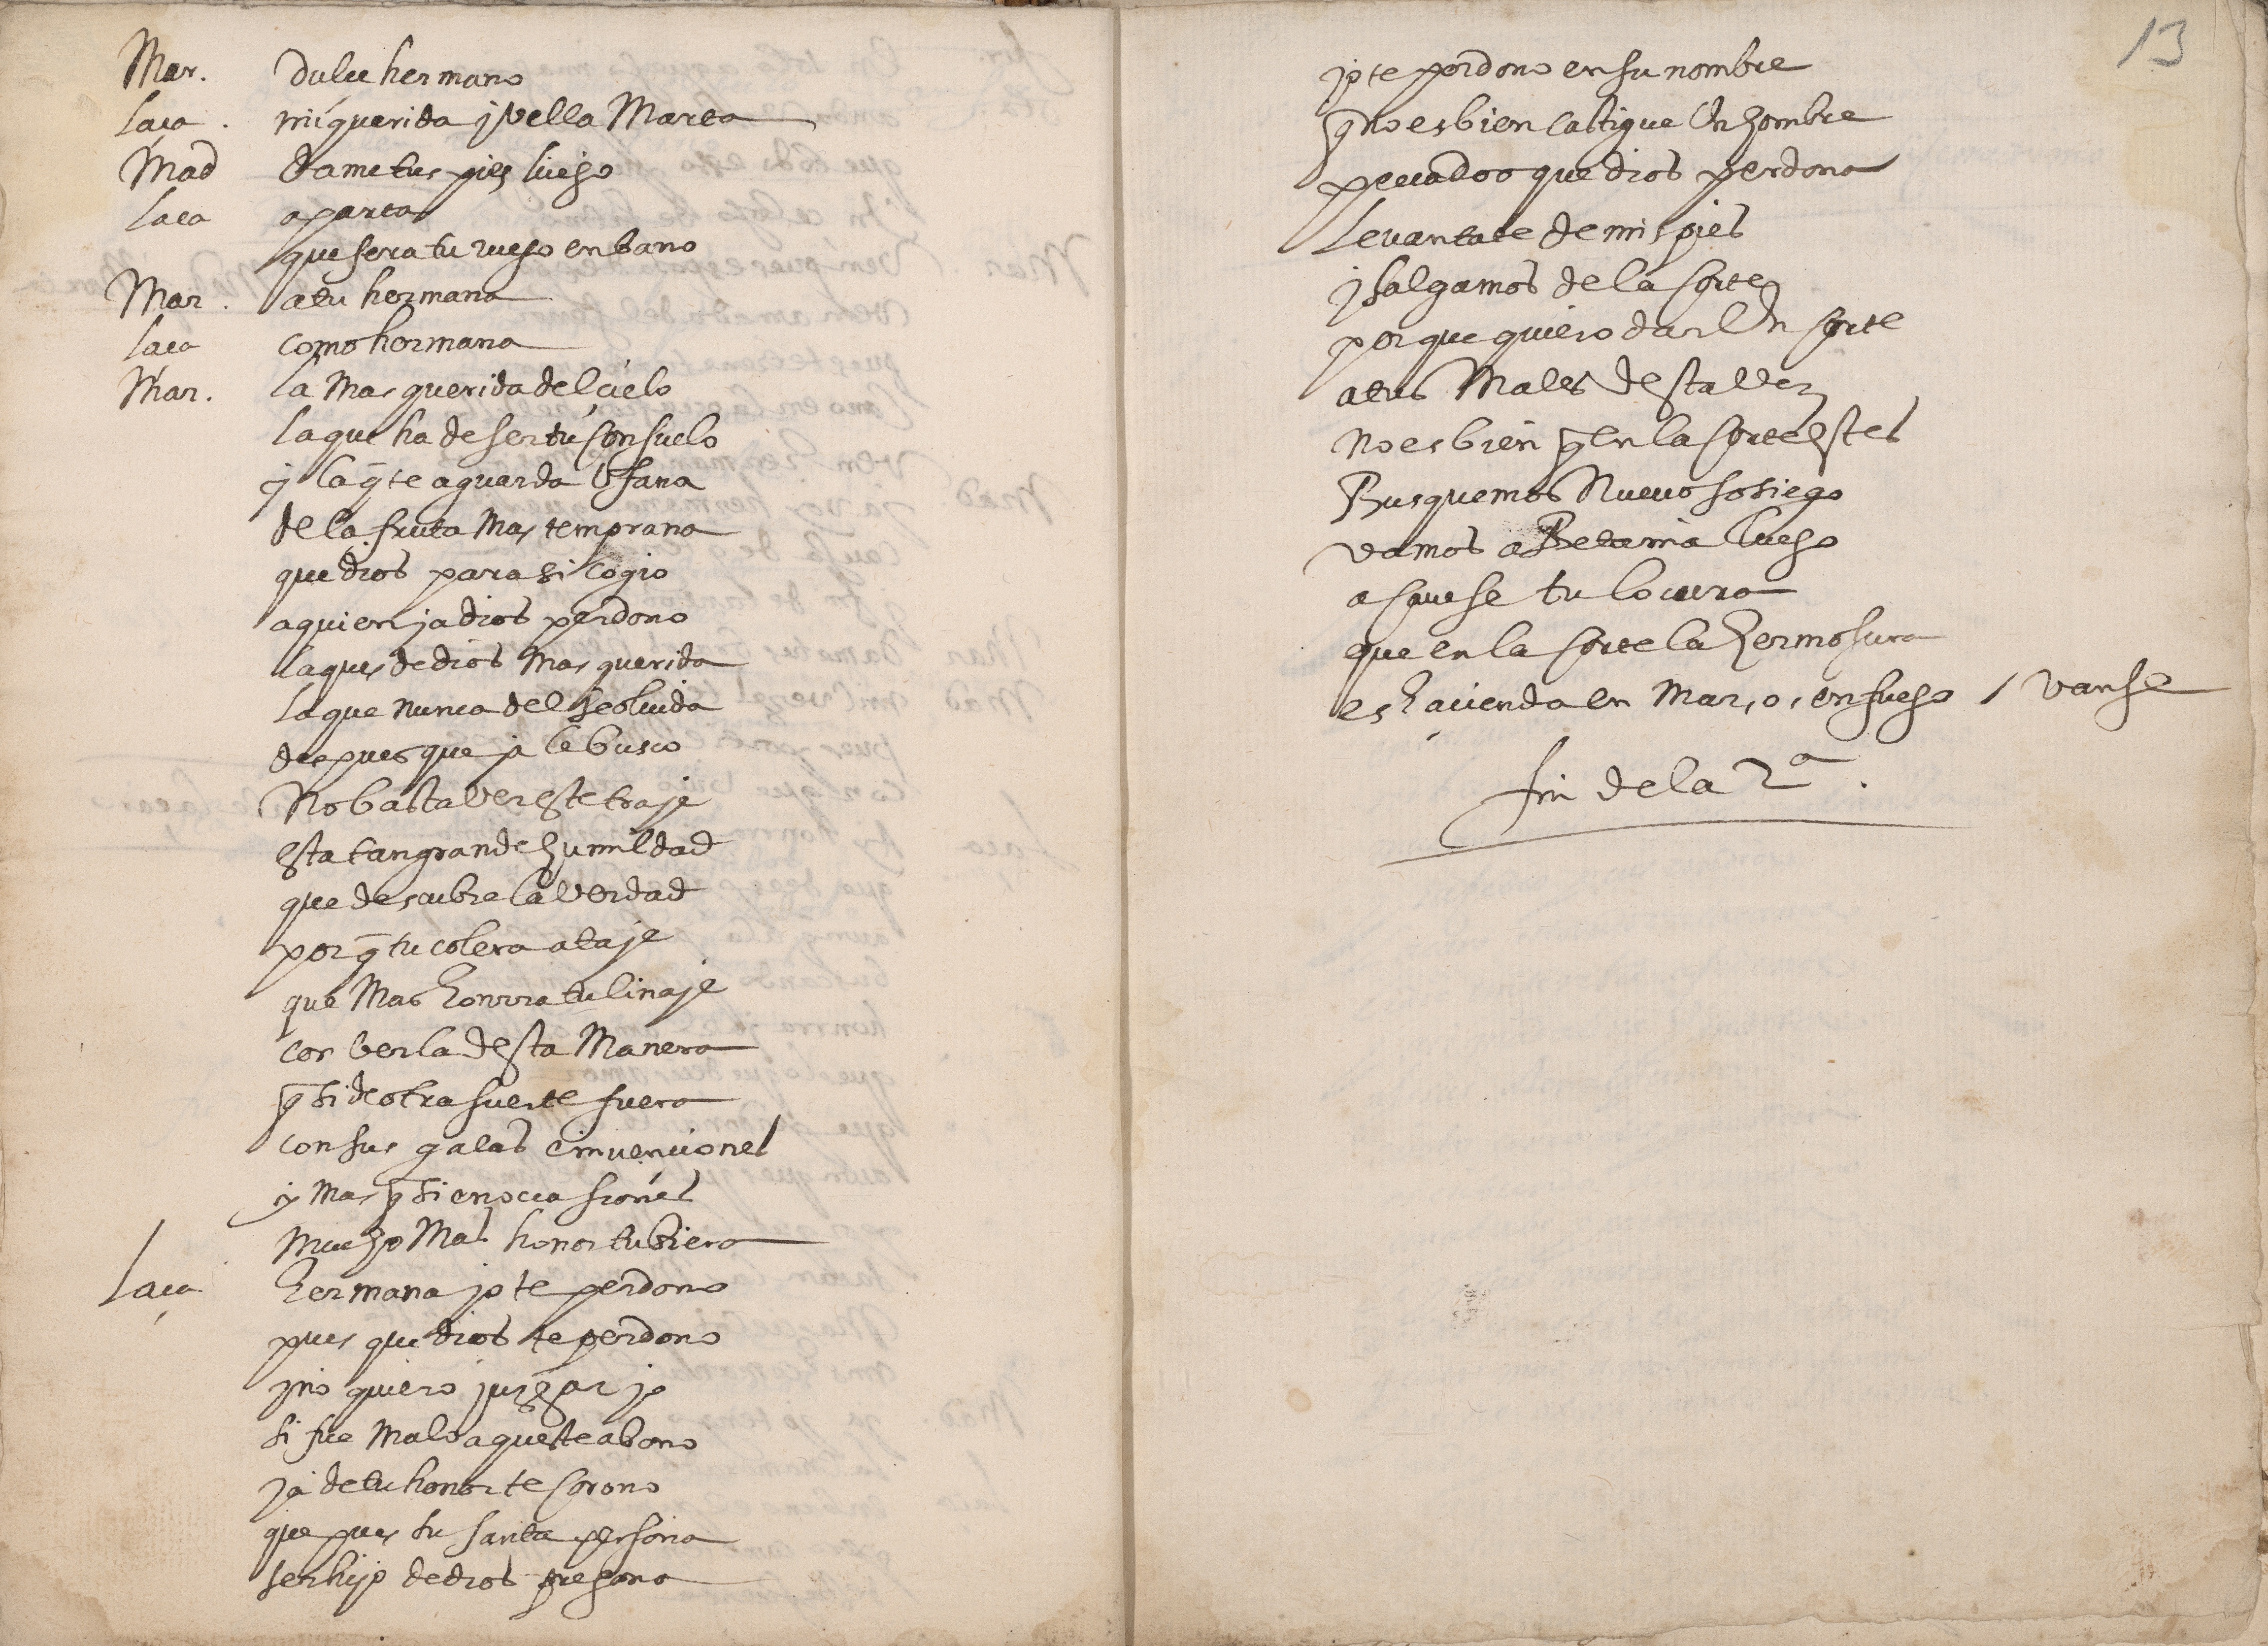 Mar. dulce hermano
laça. mi querida y vella Marta
Mad dame tus pies luego
laça aparta
que sera tu ruego en bano
Mar. a tu hermana
laça como hermana
Mar. la Mas querida del çielo
la que ha de ser tu consuelo
y la q̃ te aguarda ufana
de la fruta Mas temprana
que dios para si cogio
a quien ya dios perdono
la ques de dios Mas querida
la que nunca del se olvida
despues que ya le busco
No basta ver este traje
esta tan grande humildad
que descubre la verdad
por q̃ tu colera ataje
que Mas honrra tu linaje
con verla desta Manera
q̃ si de otra suerte fuera
con sus galas e invenciones
y Mas q̃ si en ocasiones
mucho Mas honor tubiera
laça hermana yo te perdono
pues que dios te perdono
y no quiero juzgar yo
si fue Malo aqueste abono
ya de tu honor te corono
que pues su santa persona
ser hijo de dios pregona
13
yo te perdono en su nombre
q̃ no es bien castigue un hombre
peccado que dios perdona
levantate de mis pies
y salgamos de la corte
porque quiero dar un corte
a tus Males desta vez
no es bien q̃ en la corte estes
Busquemos Nuevo sosiego
vamos a Betania luego
a  tu locura
que en la corte la hermosura
es haçienda en Mar, o, en fuego / vanse
fin de la 2ª.